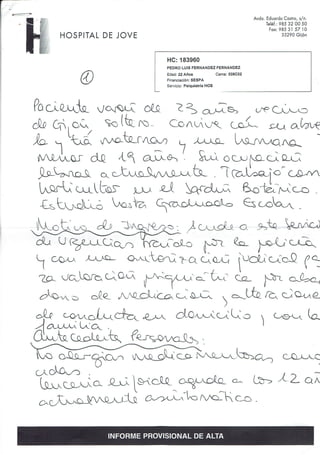 Avda. Eduardo Castro, s/n.
Teléf.: 985 32 00 50
Fax: 985 31 57 10
33290 Gijón
HOSPITAL DE JOVE
HC: 183960
PEDRO LUIS FERNANDEZ FERNANDEZ
Edad: 23 Años
Financiación: SESPA
Servicio: Psiquiatría HOS
1
Paciente varón de 23 años, vecino
de Gijón soltero. Convive con su abue
la y tía maternas y una hermana
menor de 19 años. Sin ocupación
laboral actualmente. Trabajó com
horticultor en el Jardín Botánico.
Estudió hasta Graduado Escolar.
Motivo de Ingreso: Acude a este Servici
de Urgencias traído por la policía
y con una autorización judicial pa
ra valoración psiquiátrica por aban
dono de medicación y alteracione
de conducta en domicilio y con la
familia.
Antecedentes Personales:
No alergias medicamentosas cono
cidas.
Leucemia aguda a los 12 añ
actualmente asintomático.
INFORME PROVISIONAL DE ALTA